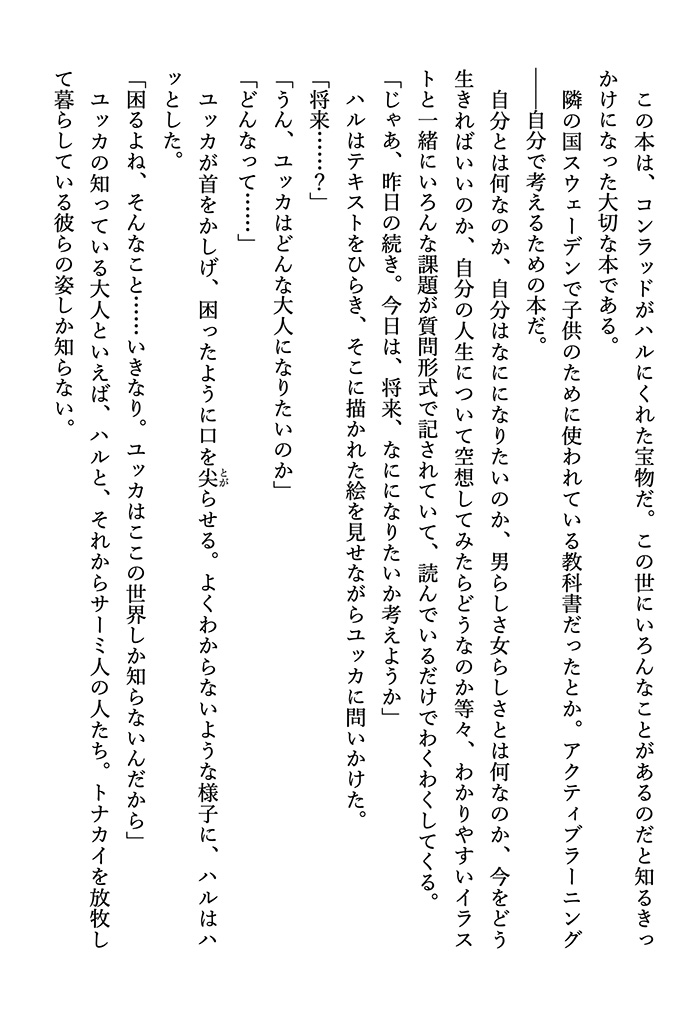 この本は、コンラッドがハルにくれた宝物だ。この世にいろんなことがあるのだと知るきっ
かけになった大切な本である。
　隣の国スウェーデンで子供のために使われている教科書だったとか。アクティブラーニング
――自分で考えるための本だ。
　自分とは何なのか、自分はなにになりたいのか、男らしさ女らしさとは何なのか、今をどう
生きればいいのか、自分の人生について空想してみたらどうなのか等々、わかりやすいイラス
トと一緒にいろんな課題が質問形式で記されていて、読んでいるだけでわくわくしてくる。
「じゃあ、昨日の続き。今日は、将来、なにになりたいか考えようか」
　ハルはテキストをひらき、そこに描かれた絵を見せながらユッカに問いかけた。
「将来……？」
「うん、ユッカはどんな大人になりたいのか」
「どんなって……」
　ユッカが首をかしげ、困ったように口を尖らせる。よくわからないような様子に、ハルはハ
ッとした。
「困るよね、そんなこと……いきなり。ユッカはここの世界しか知らないんだから」
　ユッカの知っている大人といえば、ハルと、それからサーミ人の人たち。トナカイを放牧し
て暮らしている彼らの姿しか知らない。